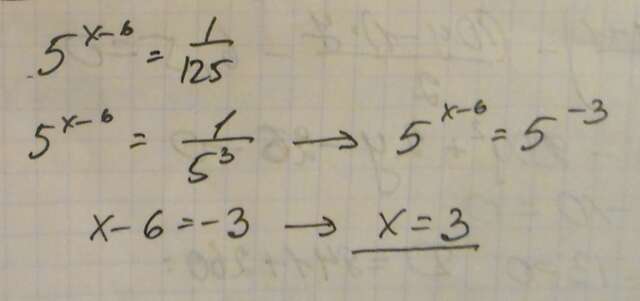 5^{x-6} = \frac{1}{125}
5^{x-6} = \frac{1}{5^3} → 5^{x-6} = 5^{-3}
x-6 = -3 → x = 3